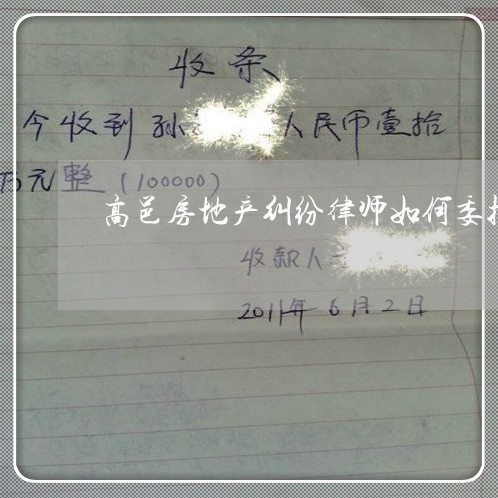 收条
今收到孙 人民币壹拾
万元整(100000)
高邑房地产纠纷律师如何委
收款人
2011年6月2日